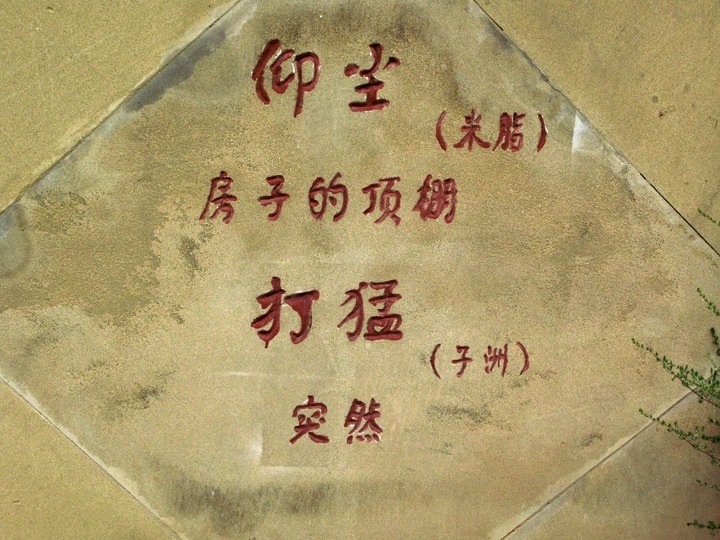 仰尘
(米脂)
房子的顶棚
打猛
(子洲)
突然